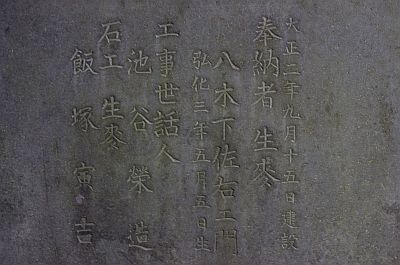 大正二年九月十五日建設
奉納者 生麥
八木下佐右エ門
弘化三年五月五日生
工事世話人
池谷榮造
石工 生麥
飯塚寅吉